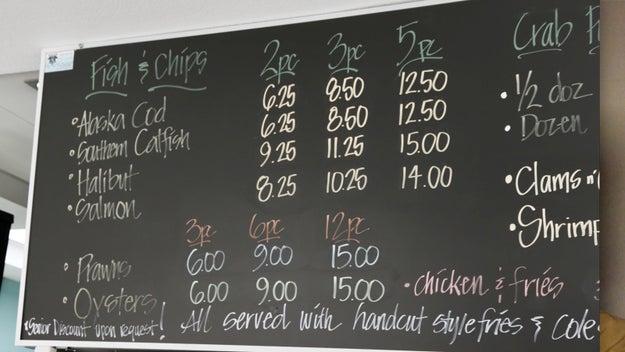 Fish & Chips 2pc 3pc 5pc Crab
• Alaska Cod 6.25 8.50 12.50 • 1/2 doz
• Southern Catfish 6.25 8.50 12.50 • Dozen
• Halibut 9.25 11.25 15.00
• Salmon 8.25 10.25 14.00 • Clams n'
3pc 6pc 12pc • Shrimp
• Prawns 6.00 9.00 15.00
• Oysters 6.00 9.00 15.00 • chicken & fries
*Senior Discount upon request! All served with handcut style fries & Cole